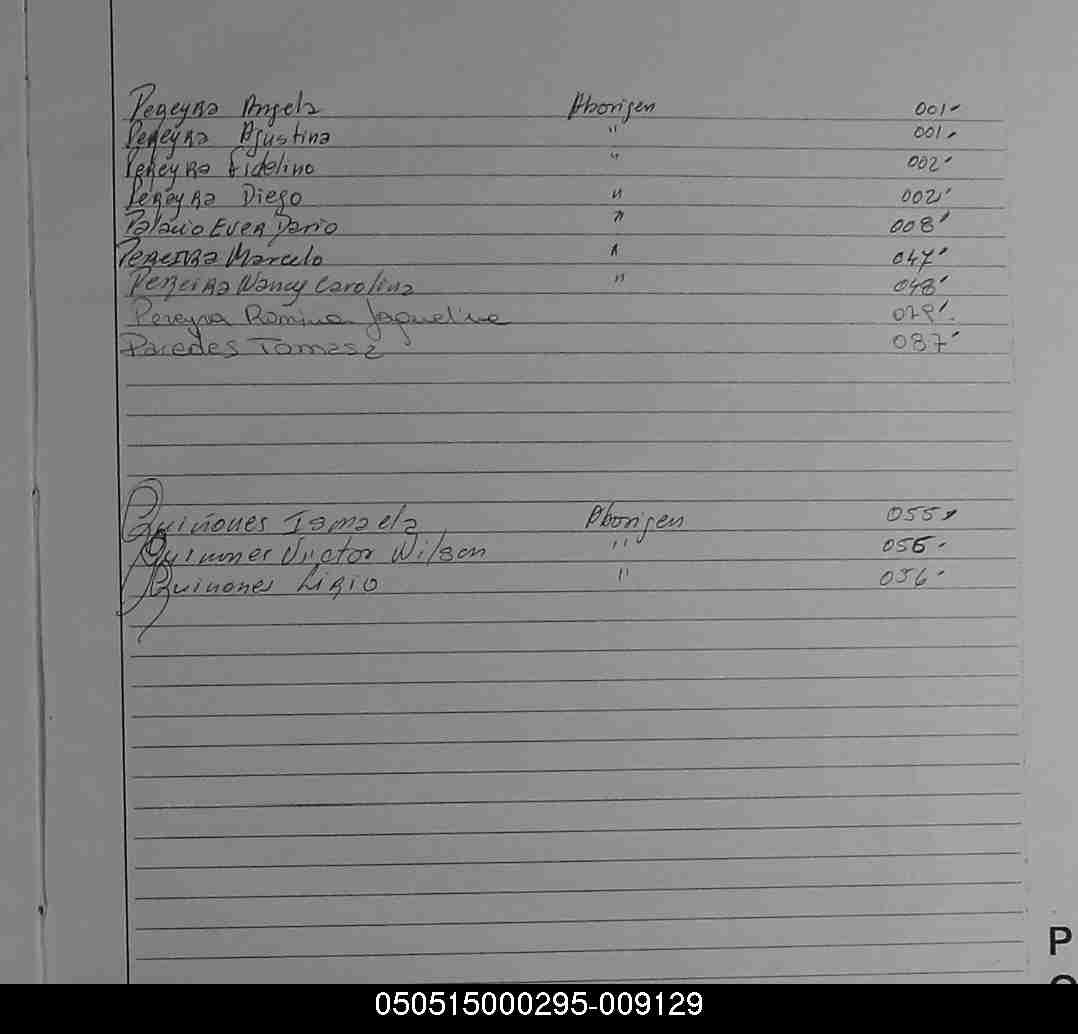 Pereyra Angela Aborigen 001-
Pereyra Agustina " 001-
Pereyra Fidelino " 002-
Pereyra Diego " 002-
Palacio Ever Dario " 008-
Pereira Marcelo " 047-
Pereira Nancy Carolina " 048-
Pereyra Romina Jaqueline
Paredes Tomasa 087-
Quiñones Ismaela Aborigen 055-
Quiñones Victor Wilson " 056-
Quiñones Lirio " 056-
P
050515000295-009129